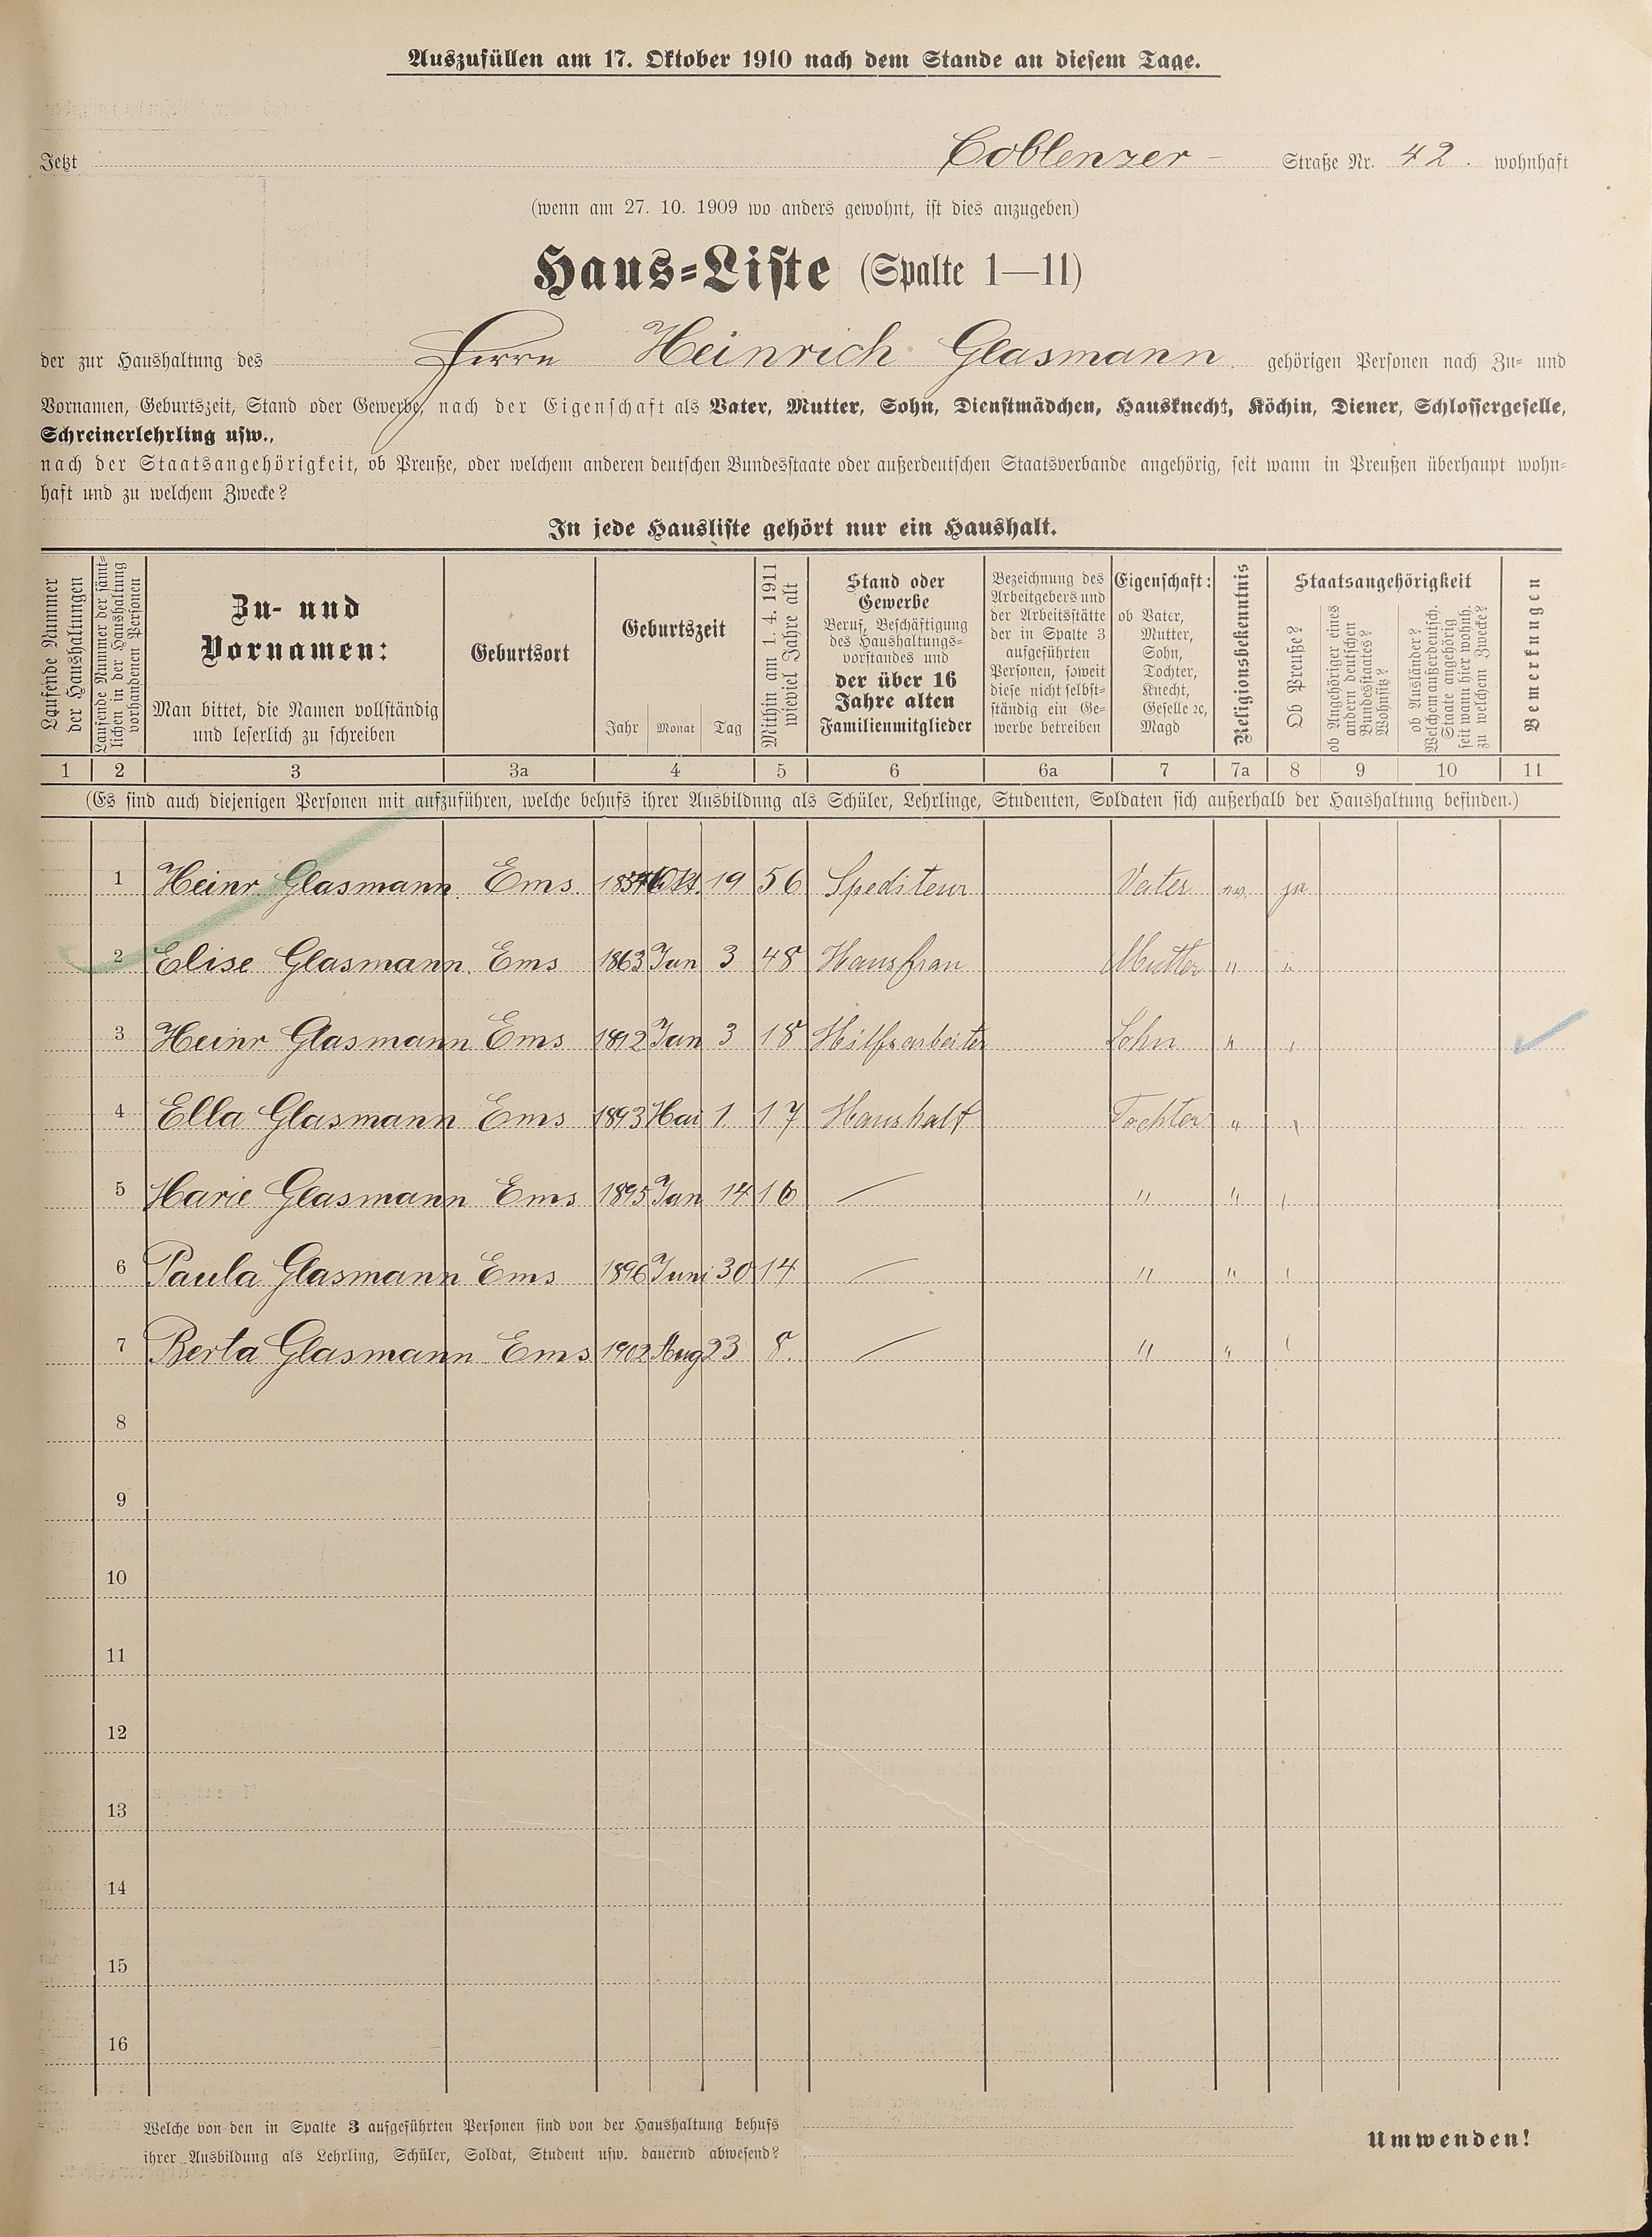 Auszufüllen am 17. Oktober 1910 nach dem Stande an diesem Tage.
Jetzt Coblenzer- Straße Nr. 42. wohnhaft
(wenn am 27. 10. 1909 wo anders gewohnt, ist dies anzugeben)
Haus-Liste (Spalte 1—11)
der zur Haushaltung des Herrn Heinrich Glasmann gehörigen Personen nach Zu- und
Vornamen, Geburtszeit, Stand oder Gewerbe, nach der Eigenschaft als Vater, Mutter, Sohn, Dienstmädchen, Hausknecht, Köchin, Diener, Schlossergeselle,
Schreinerlehrling usw.,
nach der Staatsangehörigkeit, ob Preuße, oder welchem anderen deutschen Bundesstaate oder außerdeutschen Staatsverbande angehörig, seit wann in Preußen überhaupt wohn-
haft und zu welchem Zwecke?
In jede Hausliste gehört nur ein Haushalt.
Laufende Nummer
der Haushaltungen
Laufende Nummer der sämt-
lichen in der Haushaltung
vorhandenen Personen
Zu- und
Vornamen:
Man bittet, die Namen vollständig
und leserlich zu schreiben
Geburtsort
Geburtszeit
Jahr Monat Tag
Mithin am 1. 4. 1911
wieviel Jahre alt
Stand oder
Gewerbe
Beruf, Beschäftigung
des Haushaltungs-
vorstandes und
der über 16
Jahre alten
Familienmitglieder
Bezeichnung des
Arbeitgebers und
der Arbeitsstätte
der in Spalte 3
aufgeführten
Personen, soweit
diese nicht selbst-
ständig ein Ge-
werbe betreiben
Eigenschaft:
ob Vater,
Mutter,
Sohn,
Tochter,
Knecht,
Geselle ꝛc,
Magd
Religionsbekenntnis
Staatsangehörigkeit
Ob Preuße?
ob Angehöriger eines
andern deutschen
Bundesstaates?
Wohnsitz?
ob Ausländer?
Welchem außerdeutsch.
Staate angehörig
seit wann hier wohnh.
zu welchem Zwecke?
Bemerkungen
1 2 3 3a 4 5 6 6a 7 7a 8 9 10 11
(Es sind auch diejenigen Personen mit aufzuführen, welche behufs ihrer Ausbildung als Schüler, Lehrlinge, Studenten, Soldaten sich außerhalb der Haushaltung befinden.)
1 Heinr Glasmann Ems. Okt. 19 56 Spediteur Vater ja
2 Elise Glasmann. Ems 1863 Jan 3 48 Hausfrau Mutter " "
3 Heinr Glasmann Ems 1892 Jan 3 18 Hilfsarbeiter Sohn " "
4 Ella Glasmann Ems 1893 Mai 1. 17 Haushalt Tochter " "
5 Marie Glasmann Ems 1895 Jan 14 16 — " " "
6 Paula Glasmann Ems 1896 Juni 30 14 — " " "
7 Berta Glasmann Ems 1902 Aug 23 8. — " " "
8
9
10
11
12
13
14
15
16
Welche von den in Spalte 3 aufgeführten Personen sind von der Haushaltung behufs
ihrer Ausbildung als Lehrling, Schüler, Soldat, Student usw. dauernd abwesend?
Umwenden!